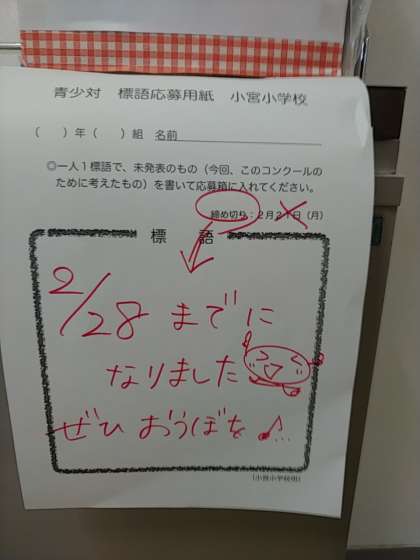 青少対 標語応募用紙 小宮小学校
( )年( )組 名前
◎一人1標語で、未発表のもの(今回、このコンクールの
ために考えたもの)を書いて応募箱に入れてください。
締め切り:2月21日(月)
標 語
2/28 までに
なりました
ぜひ おうぼを♪...
(小宮小学校用)